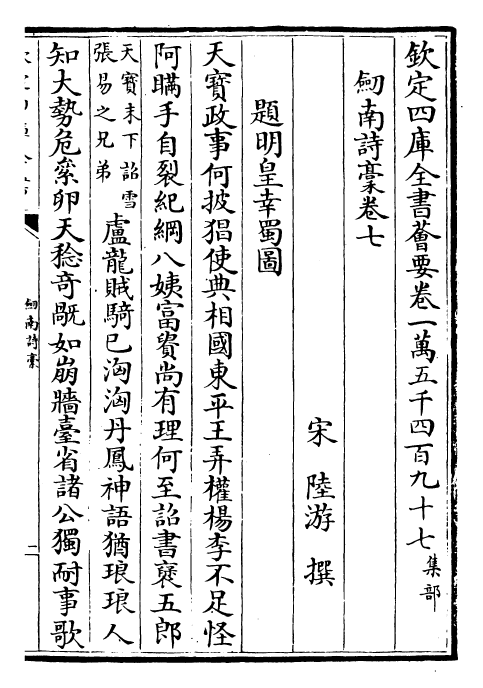 欽定四庫全書薈要卷一萬五千四百九十七集部
劒南詩稾卷七
宋陸游撰
題明皇幸蜀圖
天寶政事何披猖使典相國東平王弄權楊李不足怪
阿瞞手自裂紀綱八姨富貴尚有理何至詔書褒五郎
天寶末下詔雪
張易之兄弟
盧龍賊騎已洶洶丹鳳神語猶琅琅人
知大勢危絫卵天稔奇旤如崩牆臺省諸公獨耐事歌
劒南詩稾
一